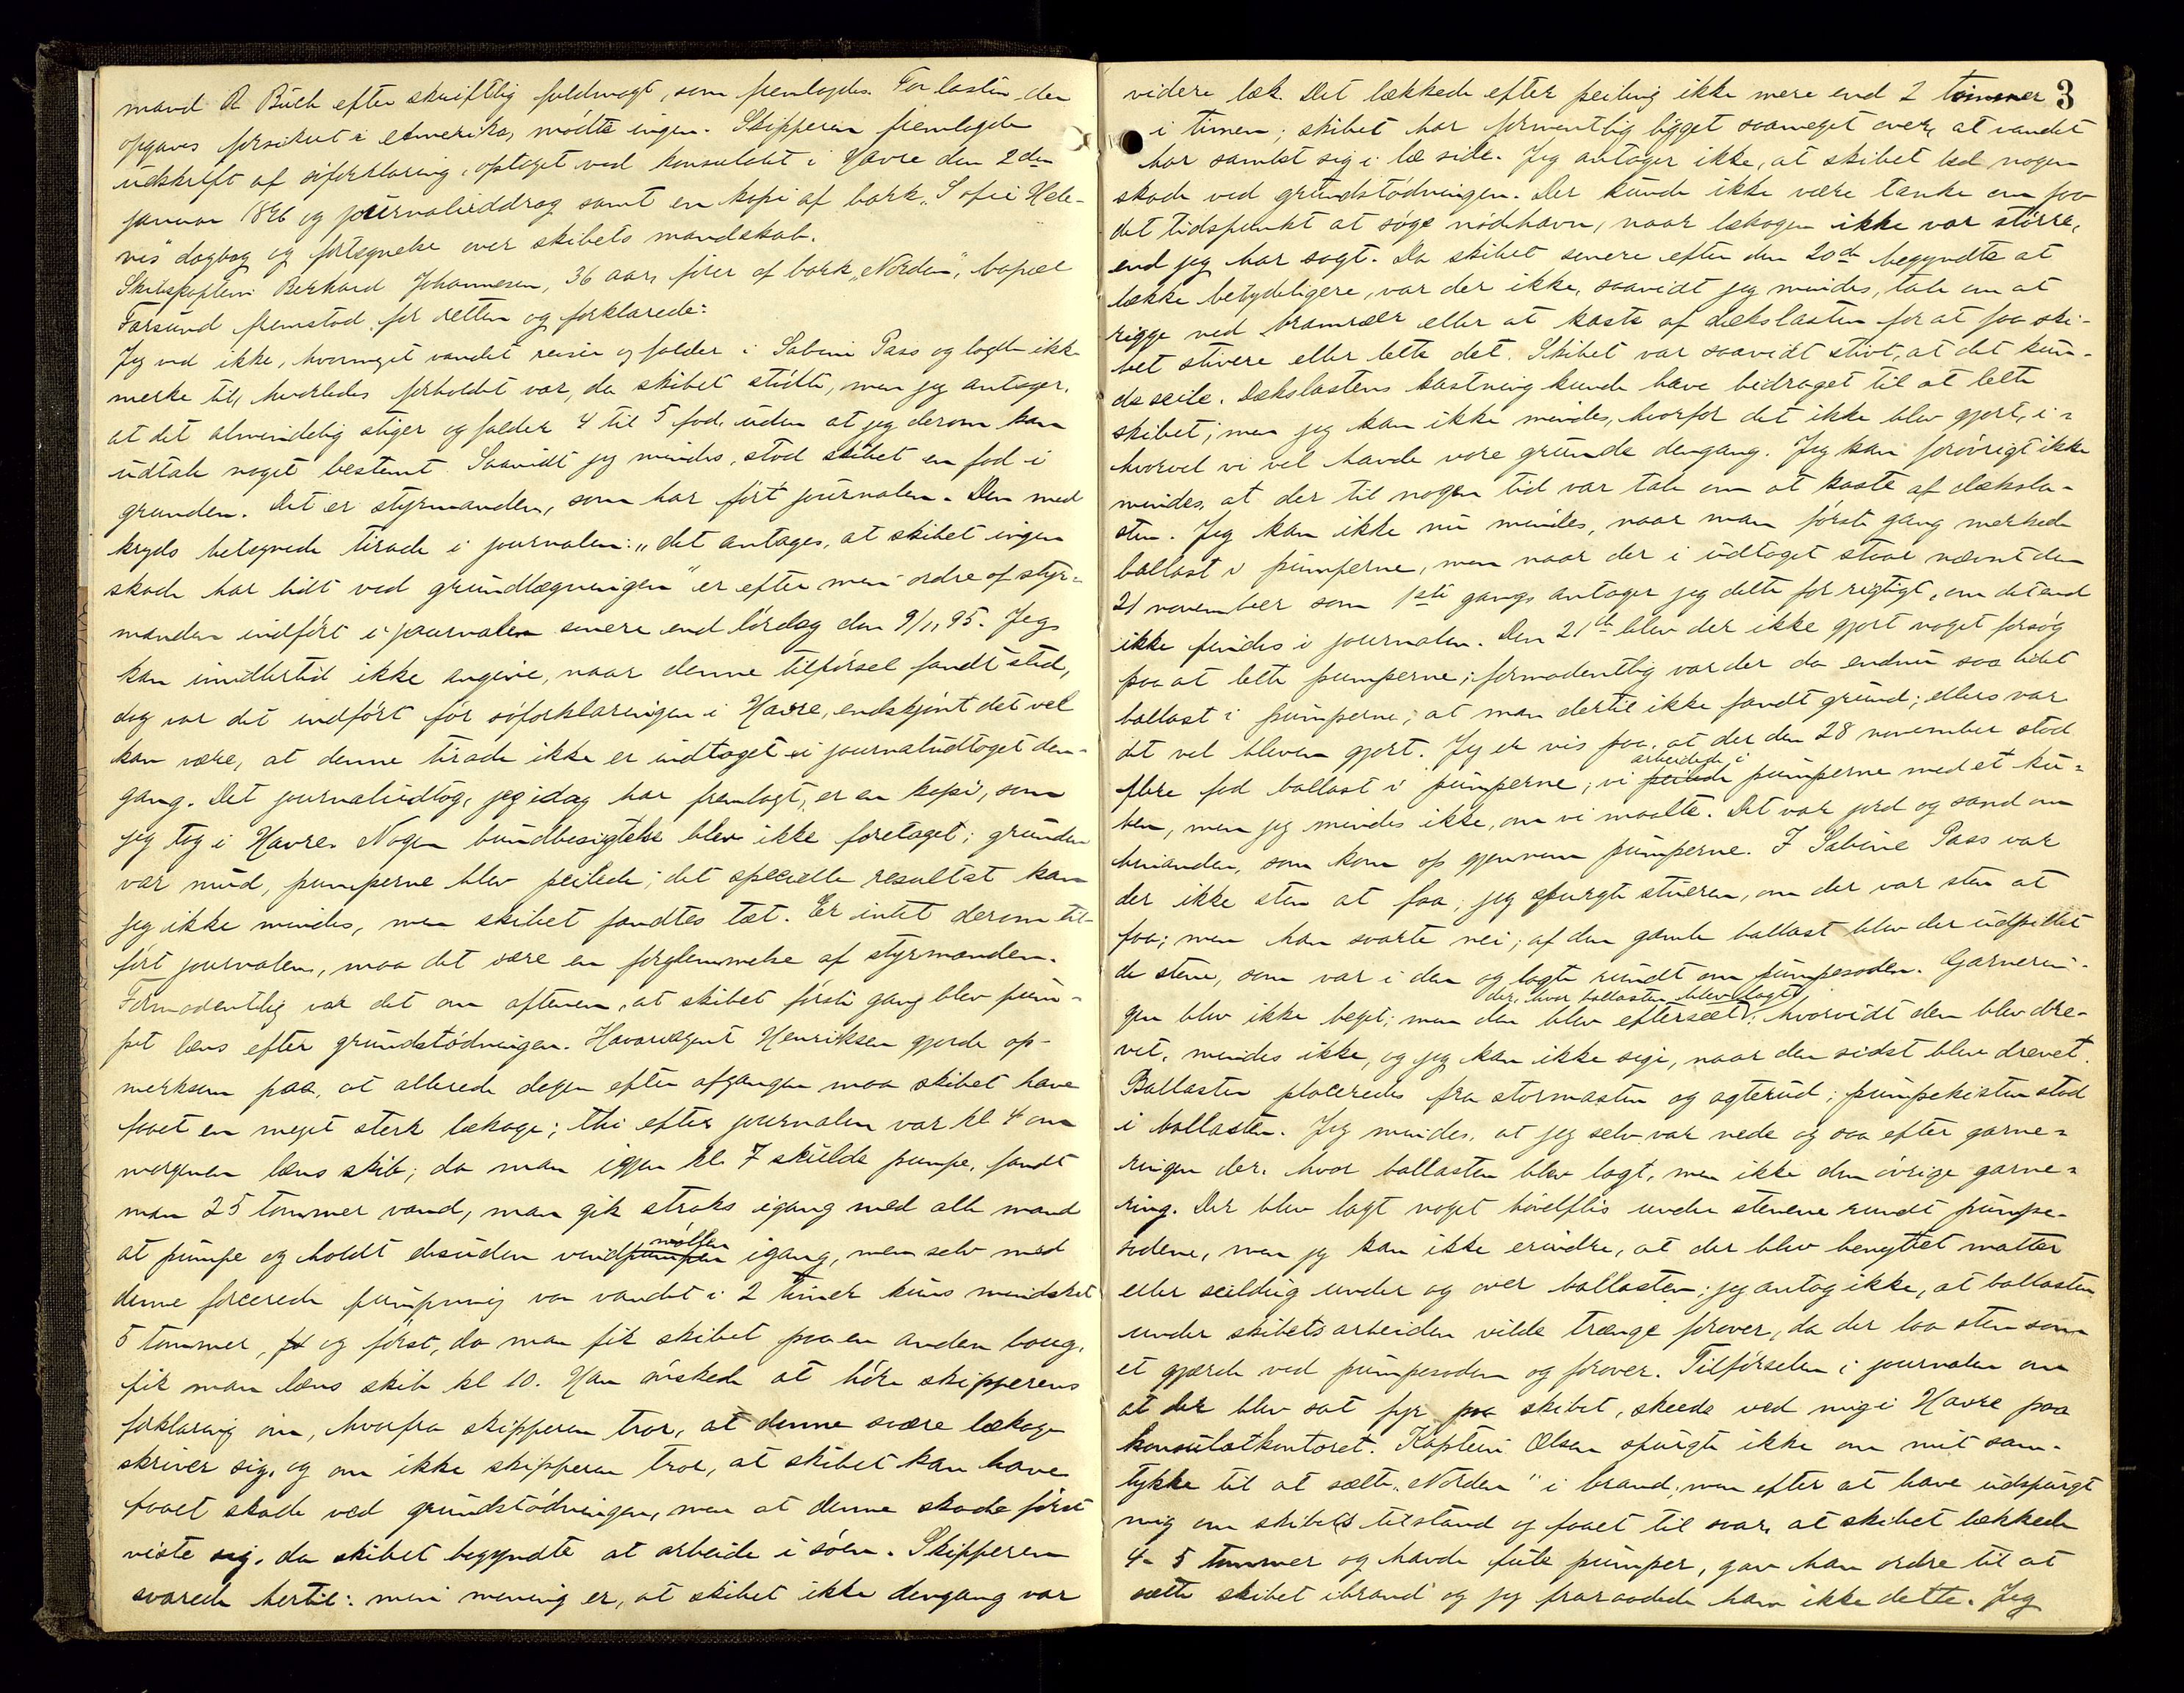 mand A Buch efter skriftlig fuldmagt, som fremlagdes. For lasten, der
opgaves forsikret i Amerika, mødte ingen. Skipperen fremlagde
udskrift af søforklaring, optaget ved konsulatet i Havre den 2den
januar 1896 og journaluddrag samt en kopi af bark "Sofie Hele-
nes" dagbog og fortegnelse over skibets mandskab.
Skibskaptein Berhard Johannesen, 36 aar, fører af bark "Norden", bopæl
Farsund fremstod for retten og forklarede:
Jeg ved ikke, hvormeget vandet reiser og falder i Sabine Pass og lagde ikke
merke til, hvorledes forholdet var, da skibet stødte, men jeg antager,
at det almindelig stiger og falder 4 til 5 fod, uden at jeg derom kan
udtale noget bestemt. Saavidt jeg mindes, stod skibet en fod i
grunden. Det er styrmanden, som har ført journalen. Den med
kryds betegnede tirade i journalen: "det antages, at skibet ingen
skade har lidt ved grundlægningen" er efter min ordre af styr-
manden indført i journalen senere end lørdag den 9/11 95. Jeg
kan imidlertid ikke angive, naar denne tilførsel fandt sted,
dog var det indført før søforklaringen i Havre, endskjønt det vel
kan være, at denne tirade ikke er indtaget i journaludtoget den-
gang. Det journaludtog, jeg idag har fremlagt, er en kopi, som
jeg tog i Havre. Nogen bundbesigtelse blev ikke foretaget; grunden
var mud, pumperne blev peilede; det specielle resultat kan
jeg ikke mindes, men skibet fandtes tæt. Er intet derom til-
ført journalen, maa det være en forglemmelse af styrmanden.
Formodentlig var det om aftenen, at skibet første gang blev pum-
pet læns efter grundstødningen. Havariagent Henriksen gjorde op-
merksom paa, at allerede dagen efter afgangen maa skibet have
faaet en meget sterk lækage; thi efter journalen var kl 4 om
morgenen læns skib; da man igjen kl. 7 skulde pumpe, fandt
man 25 tommer vand, man gik straks igang med alle mand
at pumpe og holdt desuden vindpumpen møllen igang, men selv med
denne forcerede pumpning var vandet i 2 timer kuns mindsket
5 tommer, og først, da man fik skibet paa en anden boug,
fik man læns skib kl 10. Han ønskede at høre skipperens
forklaring om, hvorfra skipperen tror, at denne svære lækage
skriver sig, og om ikke skipperen tror, at skibet kan have
faaet skade ved grundstødningen, men at denne skade først
viste sig, da skibet begyndte at arbeide i søen. Skipperen
svarede hertil: min mening er, at skibet ikke dengang var
3
videre læk. Det lækkede efter peiling ikke mere end 2 tommer
i timen; skibet har formentlig ligget saameget over, at vandet
har samlet sig i læ side. Jeg antager ikke, at skibet led nogen
skade ved grundstødningen. Der kunde ikke være tanke om paa
det tidspunkt at søge nødhavn, naar lækagen ikke var større,
end jeg har sagt. Da skibet senere efter den 20de begyndte at
lække betydeligere, var der ikke, saavidt jeg mindes, tale om at
rigge ned bramræer eller at kaste af dækslasten for at faa ski-
bet stivere eller lette det. Skibet var saavidt stivt, at det kun-
de seile. Dækslastens kastning kunde have bidraget til at lette
skibet; men jeg kan ikke mindes, hvorfor det ikke blev gjort, i-
hvorvel vi vel havde vore grunde dengang. Jeg kan forøvrigt ikke
mindes, at der til nogen tid var tale om at kaste af dæksla-
sten. Jeg kan ikke nu mindes, naar man første gang merkede
ballast i pumperne, men naar der i udtoget staar nævnt den
21 november som 1ste gang, antager jeg dette for rigtigt, om det end
ikke findes i journalen. Den 21de blev der ikke gjort noget forsøg
paa at lette pumperne; formodentlig var der da endnu saa lidet
ballast i pumperne, at man dertil ikke fandt grund; ellers var
det vel bleven gjort. Jeg er vis paa, at der den 28 november stod
flere fod ballast i pumperne; vi peilede arbeidede i pumperne med et ku-
ben, men jeg mindes ikke, om vi maalte. Det var jord og sand om
hinanden, som kom op gjennem pumperne. I Sabine Pass var
der ikke sten at faa; jeg spurgte stueren, om der var sten at
faa; men han svarte nei; af den gamle ballast blev der udpillet
de stene, som var i den og lagte rundt om pumpesoden. Garnerin-
gen blev ikke beget; men den blev efterseet der, hvor ballasten blev lagt; hvorvidt den blev dre-
vet, mindes ikke, og jeg kan ikke sige, naar den sidst blev drevet.
Ballasten placeredes fra stormasten og agterud; pumpekisten stod
i ballasten. Jeg mindes, at jeg selv var nede og saa efter garne-
ringen der, hvor ballasten blev lagt, men ikke den øvrige garne-
ring. Der blev lagt noget høvelflis under stenene rundt pumpe-
sodene, men jeg kan ikke erindre, at der blev benyttet matter
eller seildug under og over ballasten; jeg antog ikke, at ballasten
under skibets arbeiden vilde trænge forover, da der laa sten som
et gjærde ved pumpesoden og forover. Tilførselen i journalen om
at der blev sat fyr paa skibet, skeede ved mig i Havre paa
konsulatkontoret. Kaptein Olsen spurgte ikke om mit sam-
tykke til at sætte "Norden" i brand, men efter at have udspurgt
mig om skibets tilstand og faaet til svar, at skibet lækkede
4-5 tommer og havde fule pumper, gav han ordre til at
sætte skibet ibrand og jeg fraraadede ham ikke dette. Jeg